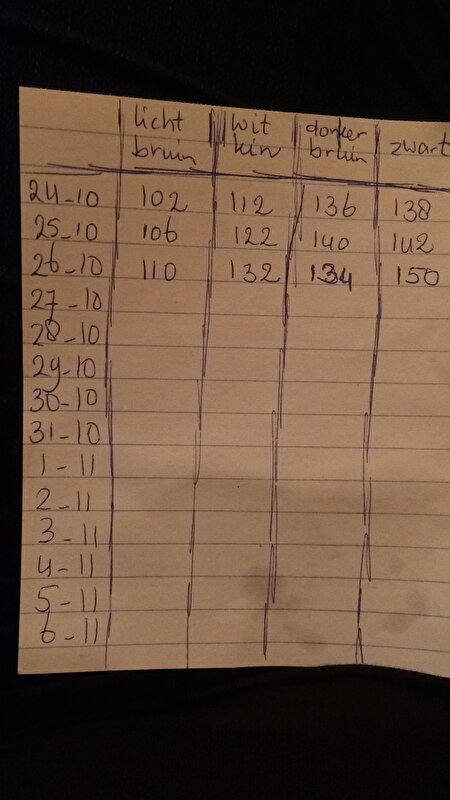 licht wit donker
bruin kin bruin zwart
24-10 102 112 136 138
25-10 106 122 140 142
26-10 110 132 134 150
27-10
28-10
29-10
30-10
31-10
1-11
2-11
3-11
4-11
5-11
6-11